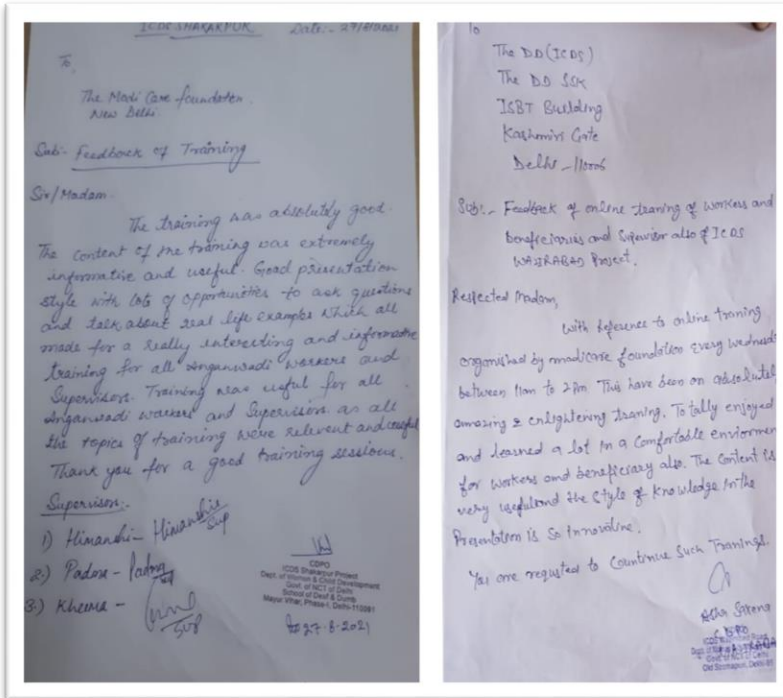 ICDS SHAKARPUR Date:- 27/8/2021
To,
The Modi Care foundation.
New Delhi.
Sub:- Feedback of Training
Sir/Madam
The training was absolutely good.
The content of the training was extremely
informative and useful. Good presentation
style with lots of opportunities to ask questions
and talk about real life examples which all
made for a really interesting and informative
training for all Anganwadi workers and
Supervisors. Training was useful for all
Anganwadi workers and Supervisors as all
the topics of training were relevant and useful
Thank you for a good training sessions.
Supervisors:-
1) Himanshi - Himanshi
Sup
2.) Padma - Padma
3.) Kheema -
SUP
CDPO
ICDS Shakarpur Project
Dept. of Women & Child Development
Govt. of NCT of Delhi
School of Deaf & Dumb
Mayur Vihar, Phase-I, Delhi-110091
27-8-2021
To
The DD (ICDS)
The DD SSK
ISBT Building
Kashmiri Gate
Delhi - 110006
Sub:- Feedback of online traning of workers and
beneficiaries and Supervisor also of ICDS
WAZIRABAD Project.
Respected Madam,
With reference to online traning
organished by modicare foundation every wednesd
between 11am to 2pm This have been an absolutel
amazing & enlightening traning. Totally enjoyed
and learned a lot in a comfortable enviormen
for workers and beneficiary also. The Content is
very useful and the style of knowledge in the
Presentation is so innovative.
You are requsted to Countinue Such Tranings.
CDPO
Govt. of NCT of Delhi